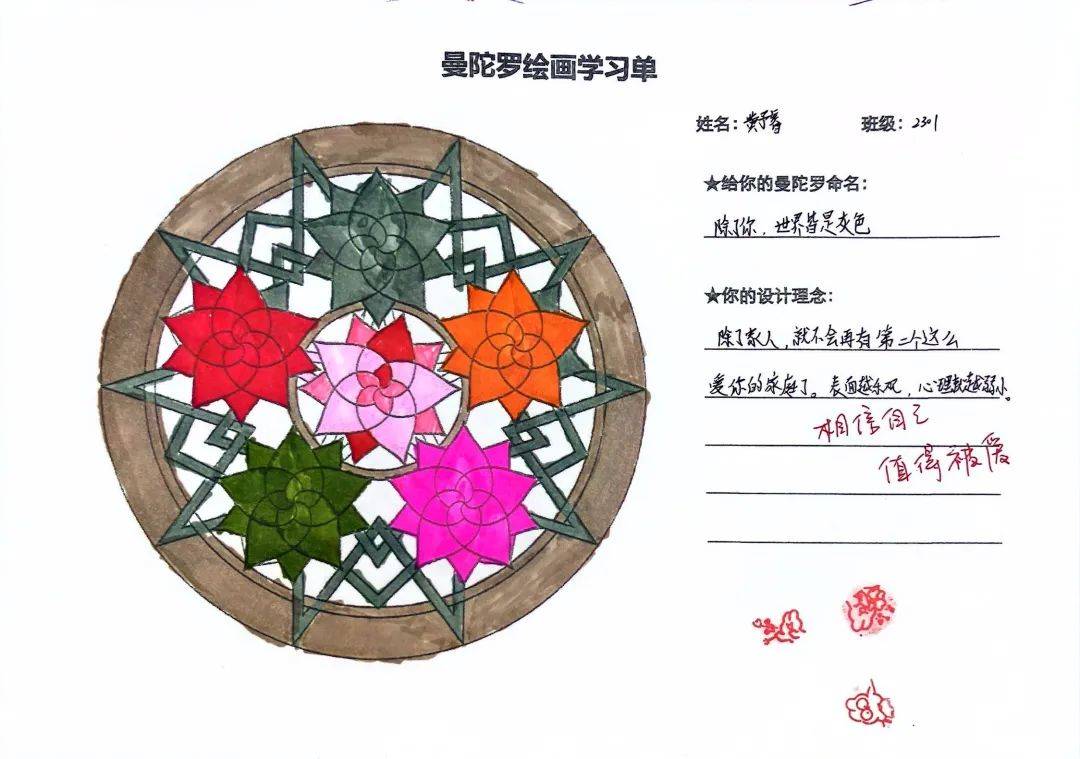 曼陀罗绘画学习单
姓名：黄子睿 班级：2301
★给你的曼陀罗命名：
除了你，世界皆是灰色
★你的设计理念：
除了家人，就不会再有第二个这么
爱你的家庭了。表面越乐观，心理就越弱小。
相信自己
值得被爱